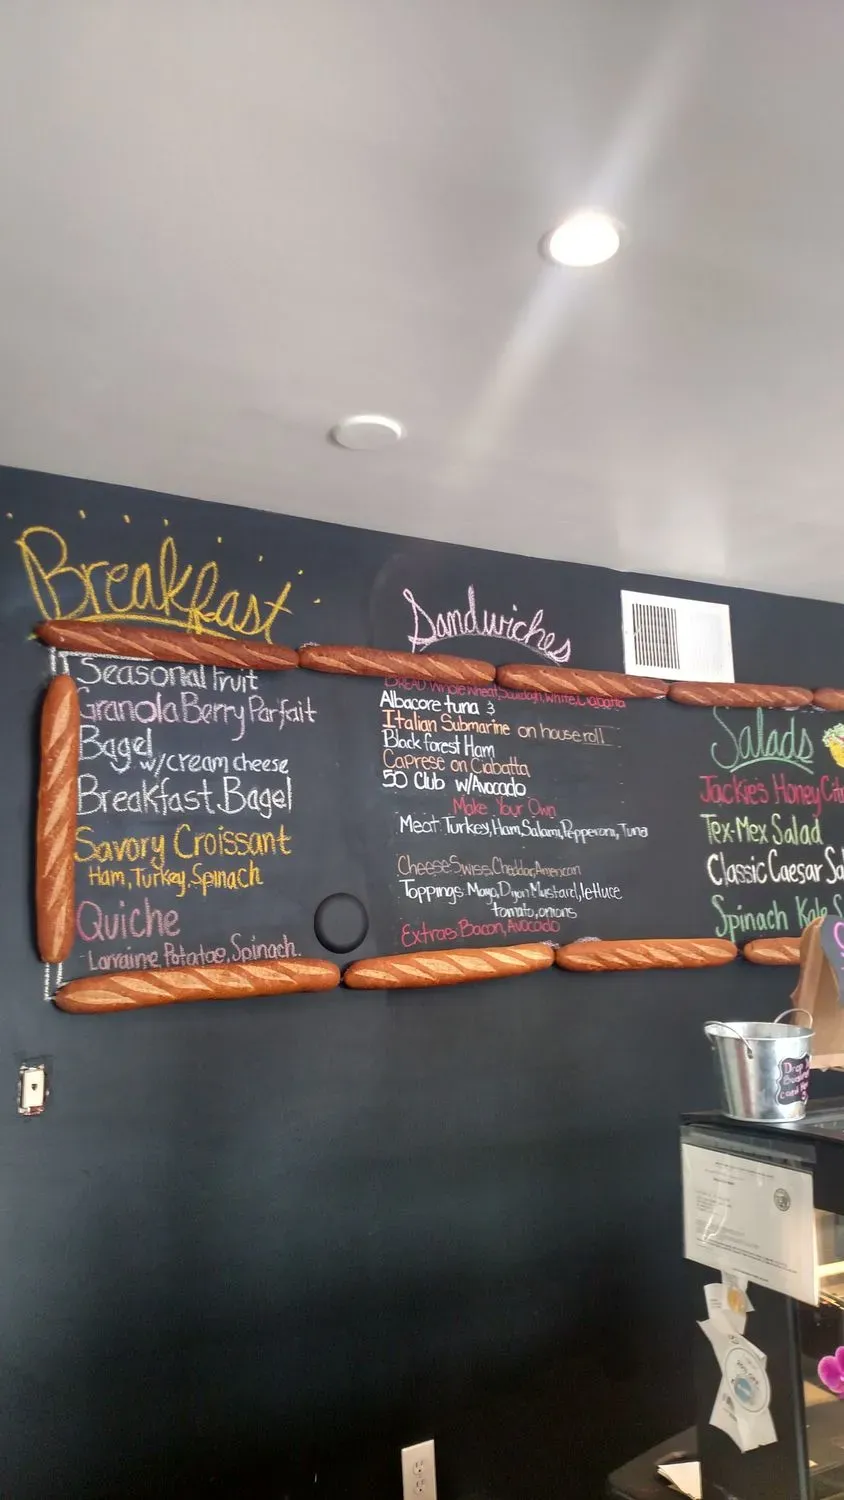 Breakfast
Seasonal Fruit
Granola Berry Parfait
Bagel
w/cream cheese
Breakfast Bagel
Savory Croissant
Ham, Turkey, Spinach
Quiche
Lorraine, Potatoe, Spinach.
Sandwiches
BREAD Whole wheat, Sourdough, White, Ciabatta
Albacore tuna
Italian Submarine on house roll
Black forest Ham
Caprese on Ciabatta
50 Club w/Avocado
Make Your Own
Meat: Turkey, Ham, Salami, Pepperoni, Tuna
Cheese: Swiss, Cheddar, American
Toppings: Mayo, Dijon Mustard, lettuce
tomato, onions
Extras: Bacon, Avocado
Salads
Jackie's Honey Citr
Tex-Mex Salad
Classic Caesar Sa
Spinach Kale S
Drop
Card